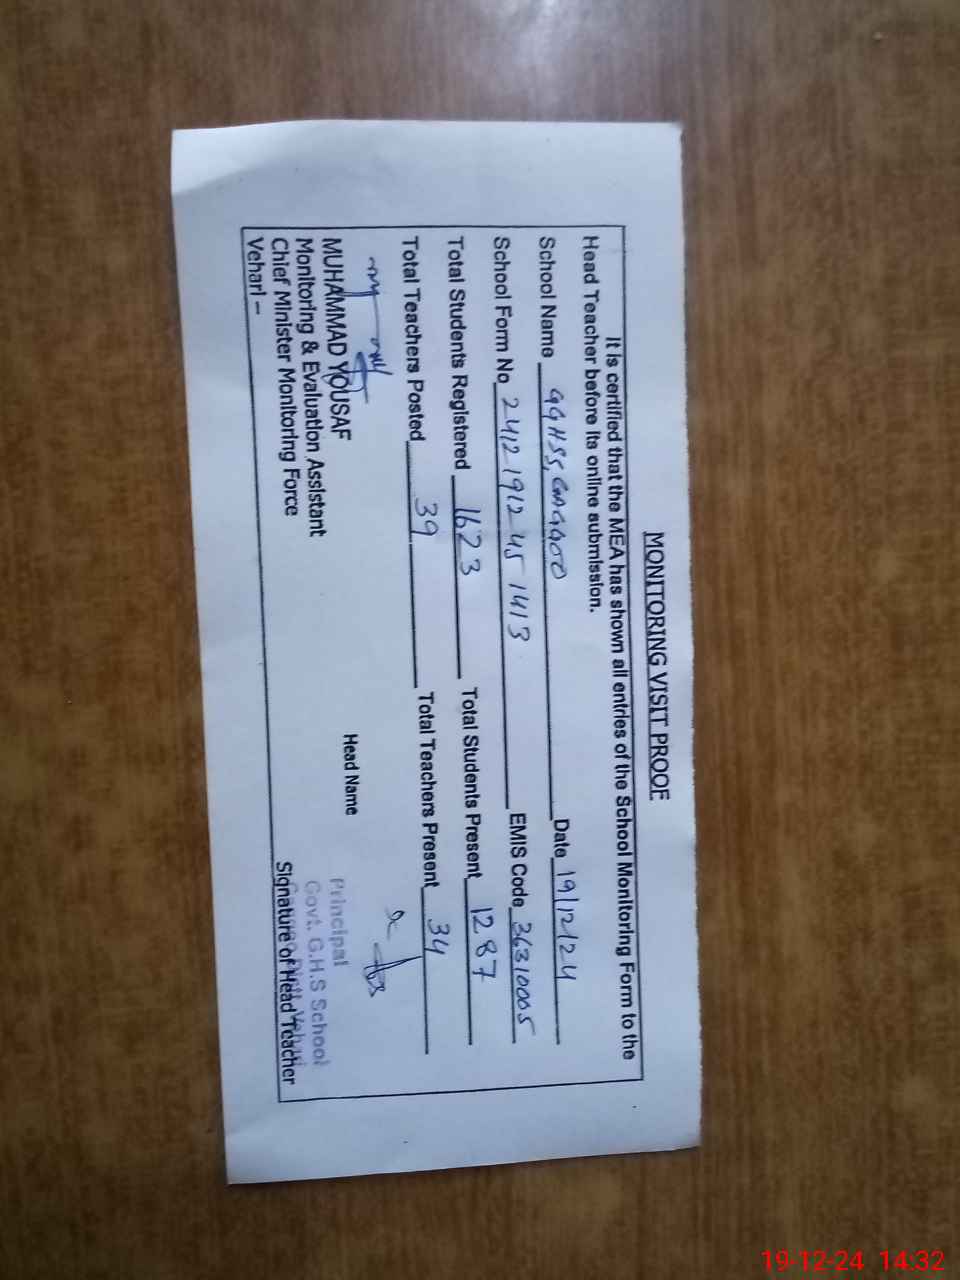 MONITORING VISIT PROOF
It is certified that the MEA has shown all entries of the School Monitoring Form to the
Head Teacher before its online submission.
School Name GGHSS, GAGGOO Date 19/12/24
School Form No 2412191245 1413 EMIS Code 36310005
Total Students Registered 1623 Total Students Present 1287
Total Teachers Posted 39 Total Teachers Present 34
MUHAMMAD YOUSAF Head Name
Monitoring & Evaluation Assistant Principal
Chief Minister Monitoring Force Govt. G.H.S School
Vehari – Signature of Head Teacher
19-12-24 14:32